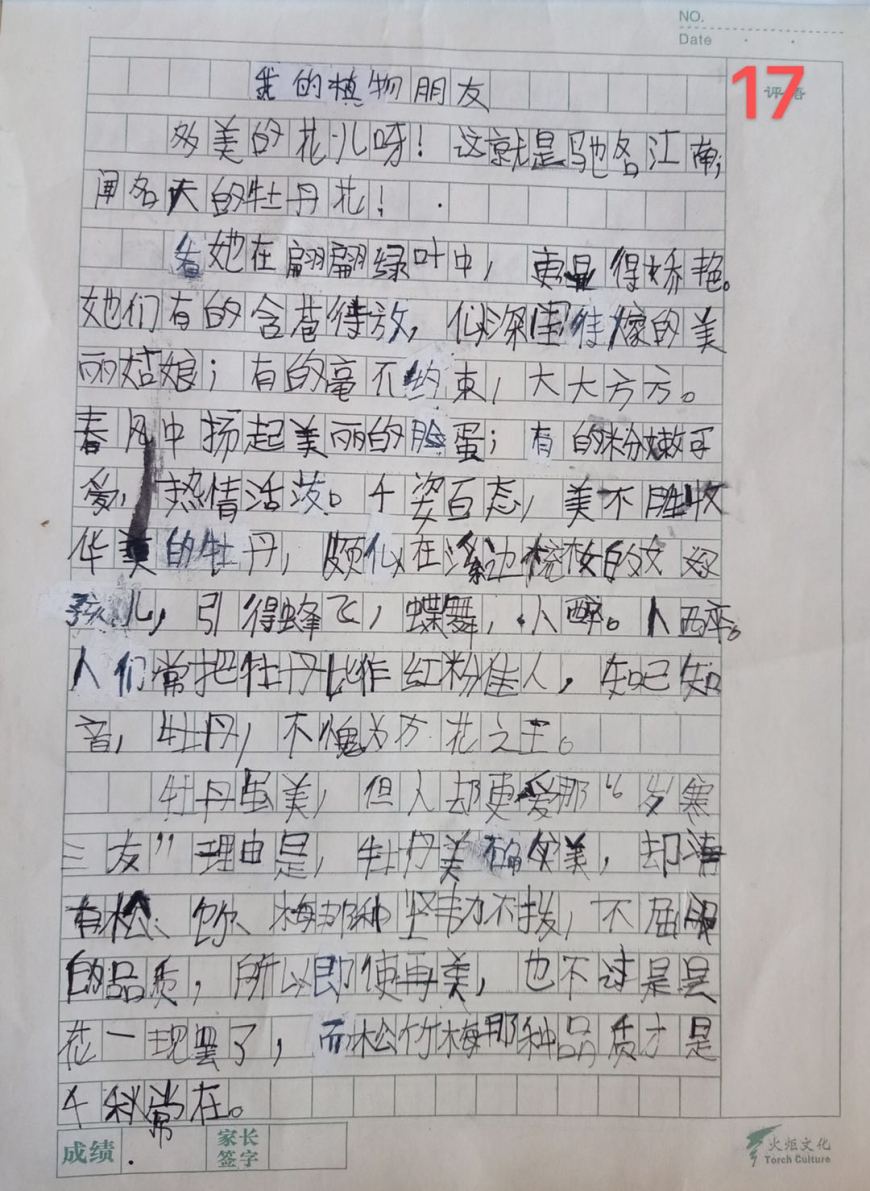 NO.
Date
17
评语
我的植物朋友
多美的花儿呀！这就是驰名江南，
闻名天的牡丹花！
看她在翩翩绿叶中，更显得娇艳。
她们有的含苞待放，似深闺待嫁的美
丽姑娘；有的毫不约束，大大方方。
春风中扬起美丽的脸蛋；有的粉嫩可
爱，热情活泼。千姿百态，美不胜收
华美的牡丹，颇似在溪边梳妆的女
孩儿，引得蜂飞，蝶舞，人醉。人醉。
人们常把牡丹比作红粉佳人，知己知
音，牡丹，不愧为万花之王。
牡丹虽美，但人却更爱那“岁寒
三友”理由是，牡丹美确实美，却没
有松、竹、梅那种坚韧不拔，不屈服
的品质，所以即使再美，也不过是昙
花一现罢了，而松竹梅那种品质才是
千秋常在。
成绩
家长
签字
火炬文化
Torch Culture